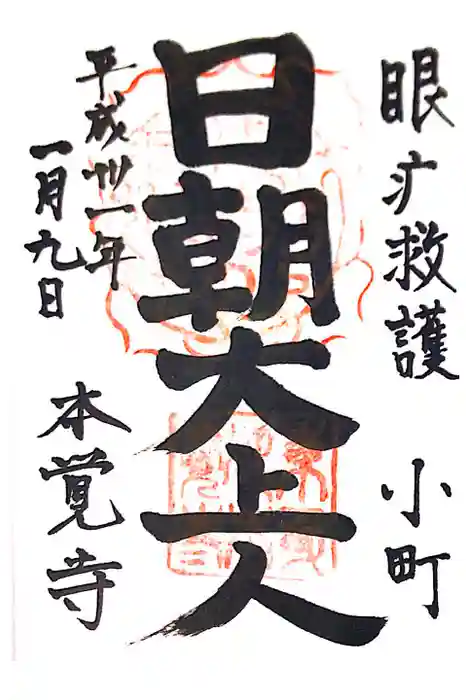 眼疒救護
小町
日朝大上人
平成卅一年
一月九日
本覚寺